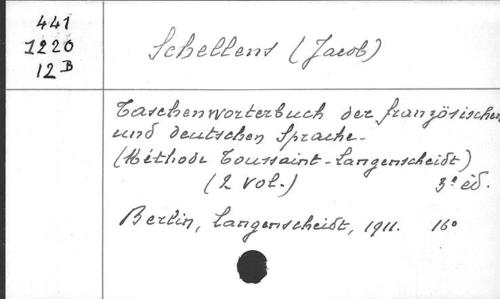 441
1220
12 B
Schellens (Jacob)
Taschenworterbuch der französischen
und deutschen Sprache-
(Méthode Toussaint-Langenscheidt)
(2 vol.) 3e éd.
Berlin, Langenscheidt, 1911. 16o